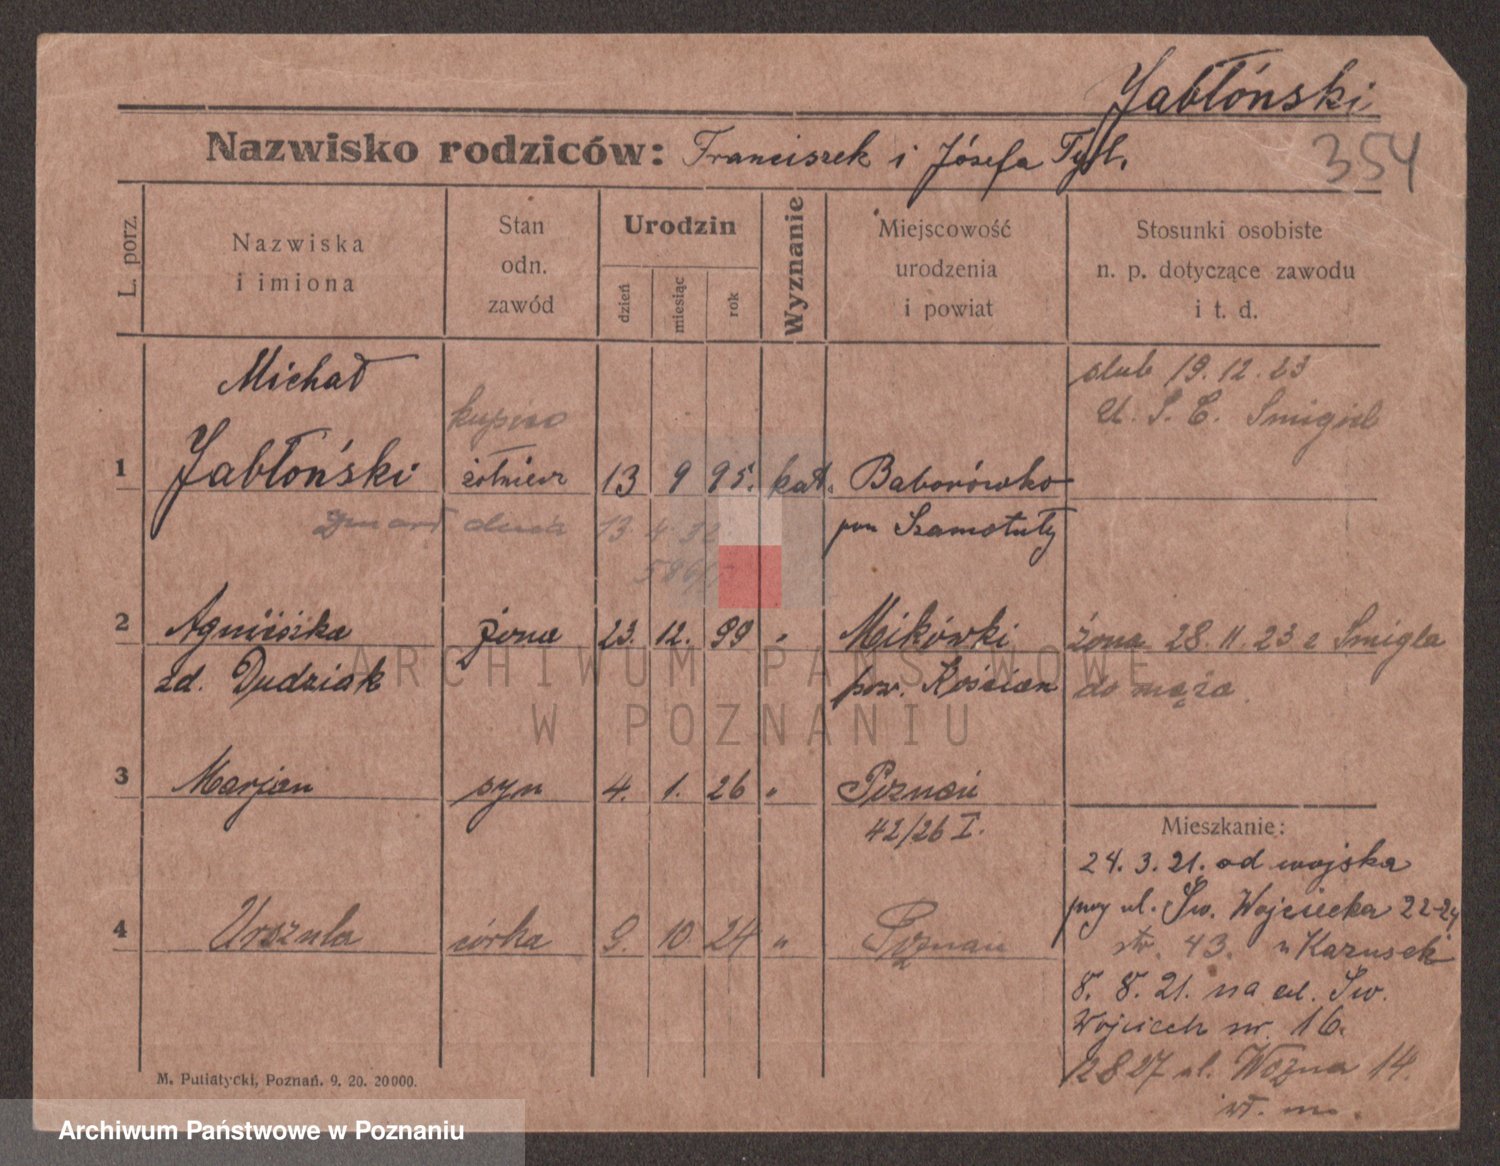 Jabłoński
354
Nazwisko rodziców: Franciszek i Józefa Tyl.
L. porz.
Nazwiska i imiona
Stan odn. zawód
Urodzin
dzień
miesiąc
rok
Wyznanie
Miejscowość urodzenia i powiat
Stosunki osobiste n. p. dotyczące zawodu i t. d.
Michał
ślub 19.12.23
kupiec
U. S. C. Smigiel
1 Jabłoński żołnierz 13 9 95. kat. Baborówko
zmarł dnia 13.4.32
pow Szamotuły
2 Agnieszka żona 23. 12. 99 " Mikówki żona 28.11.23 z Smigla
zd. Dudziak pow. Kościan do męża.
3 Marjan syn 4. 1. 26 " Poznań
42/26 I.
Mieszkanie:
24.3.21. od wojska
przy ul. Św. Wojciecka 22-24
4 Urszula córka 9. 10 24 " Poznań
str. 43. u Kazusek
8. 8. 21. na ul. Św.
Wojciech nr. 16.
ul. Woźna 14.
M. Putiatycki, Poznań. 9. 20. 20000.
ARCHIWUM PAŃSTWOWE
W POZNANIU
Archiwum Państwowe w Poznaniu